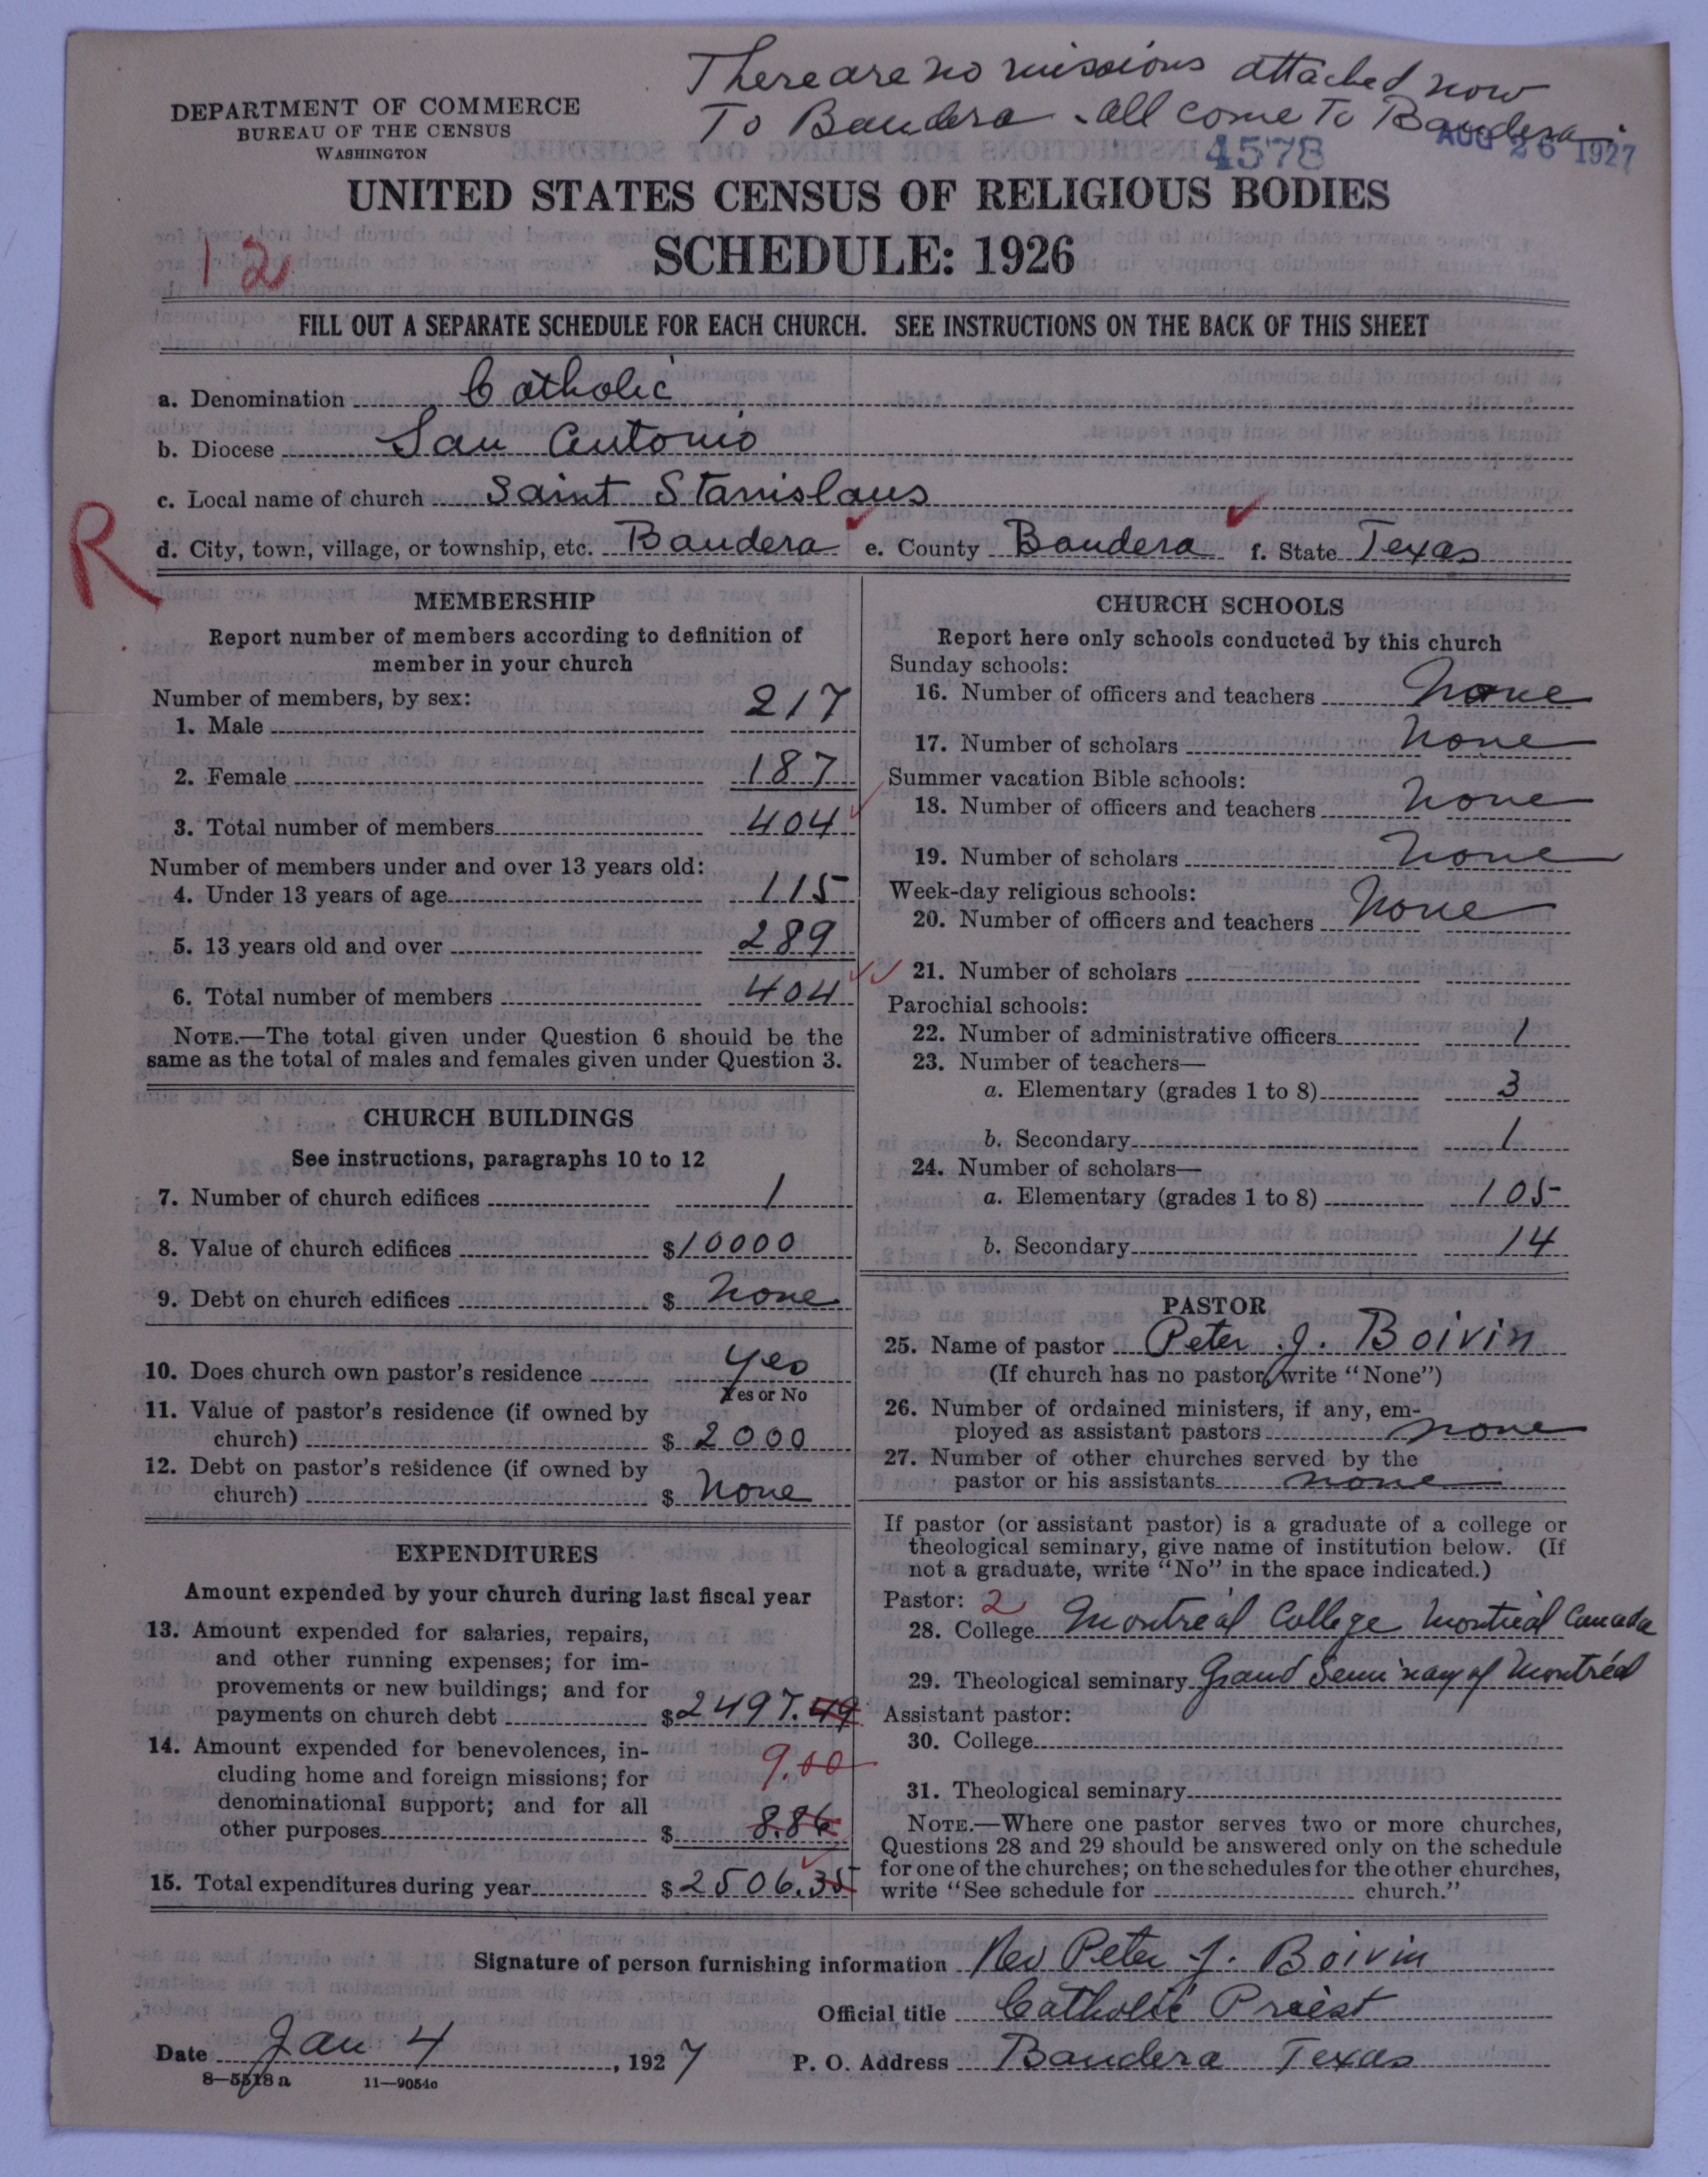 There are no missions attached now
To Bandera - all come To Bandera.
DEPARTMENT OF COMMERCE
BUREAU OF THE CENSUS
WASHINGTON
4578
AUG 26 1927
UNITED STATES CENSUS OF RELIGIOUS BODIES
SCHEDULE: 1926
12
FILL OUT A SEPARATE SCHEDULE FOR EACH CHURCH. SEE INSTRUCTIONS ON THE BACK OF THIS SHEET
a. Denomination Catholic
b. Diocese San Antonio
c. Local name of church Saint Stanislaus
R
d. City, town, village, or township, etc. Bandera e. County Bandera f. State Texas
MEMBERSHIP
Report number of members according to definition of
member in your church
Number of members, by sex:
1. Male 217
2. Female 187
3. Total number of members 404
Number of members under and over 13 years old:
4. Under 13 years of age 115
5. 13 years old and over 289
6. Total number of members 404
NOTE.—The total given under Question 6 should be the
same as the total of males and females given under Question 3.
CHURCH BUILDINGS
See instructions, paragraphs 10 to 12
7. Number of church edifices 1
8. Value of church edifices $10000
9. Debt on church edifices $ none
10. Does church own pastor's residence yes
Yes or No
11. Value of pastor's residence (if owned by
church) $ 2000
12. Debt on pastor's residence (if owned by
church) $ none
EXPENDITURES
Amount expended by your church during last fiscal year
13. Amount expended for salaries, repairs,
and other running expenses; for im-
provements or new buildings; and for
payments on church debt $2497.49
14. Amount expended for benevolences, in-
cluding home and foreign missions; for
denominational support; and for all
other purposes $ 8.86
9.00
15. Total expenditures during year $2506.35
CHURCH SCHOOLS
Report here only schools conducted by this church
Sunday schools:
16. Number of officers and teachers none
17. Number of scholars none
Summer vacation Bible schools:
18. Number of officers and teachers none
19. Number of scholars none
Week-day religious schools:
20. Number of officers and teachers none
21. Number of scholars
Parochial schools:
22. Number of administrative officers 1
23. Number of teachers—
a. Elementary (grades 1 to 8) 3
b. Secondary 1
24. Number of scholars—
a. Elementary (grades 1 to 8) 105
b. Secondary 14
PASTOR
25. Name of pastor Peter J. Boivin
(If church has no pastor, write "None")
26. Number of ordained ministers, if any, em-
ployed as assistant pastors none
27. Number of other churches served by the
pastor or his assistants none
If pastor (or assistant pastor) is a graduate of a college or
theological seminary, give name of institution below. (If
not a graduate, write "No" in the space indicated.)
Pastor: 2
28. College Montreal College Montreal Canada
29. Theological seminary Grand Seminary of Montréal
Assistant pastor:
30. College
31. Theological seminary
NOTE.—Where one pastor serves two or more churches,
Questions 28 and 29 should be answered only on the schedule
for one of the churches; on the schedules for the other churches,
write "See schedule for church."
Signature of person furnishing information Rev Peter J. Boivin
Official title Catholic Priest
Date Jan 4, 1927 P. O. Address Bandera Texas
8-5518a 11-9054c